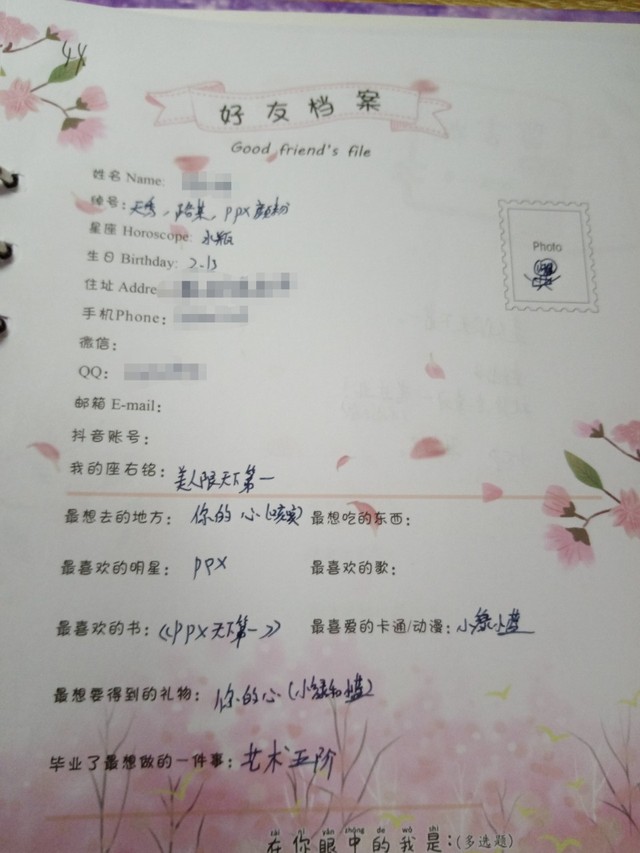 44
好友档案
Good friend's file
姓名 Name:
绰号：天秀，路某，ppx
星座 Horoscope: 水瓶
生日 Birthday: 2.13
住址 Addre
手机Phone：
微信：
QQ：
邮箱 E-mail：
抖音账号：
Photo
我的座右铭：美人限天下第一
最想去的地方：你的心(咳咳) 最想吃的东西：
最喜欢的明星：ppx 最喜欢的歌：
最喜欢的书：《ppx天下第一》 最喜爱的卡通/动漫：小绿小蓝
最想要得到的礼物：你的心(小绿和小蓝)
毕业了最想做的一件事：艺术五阶
zài nǐ yǎn zhōng de wǒ shì
在你眼中的我是：(多选题)